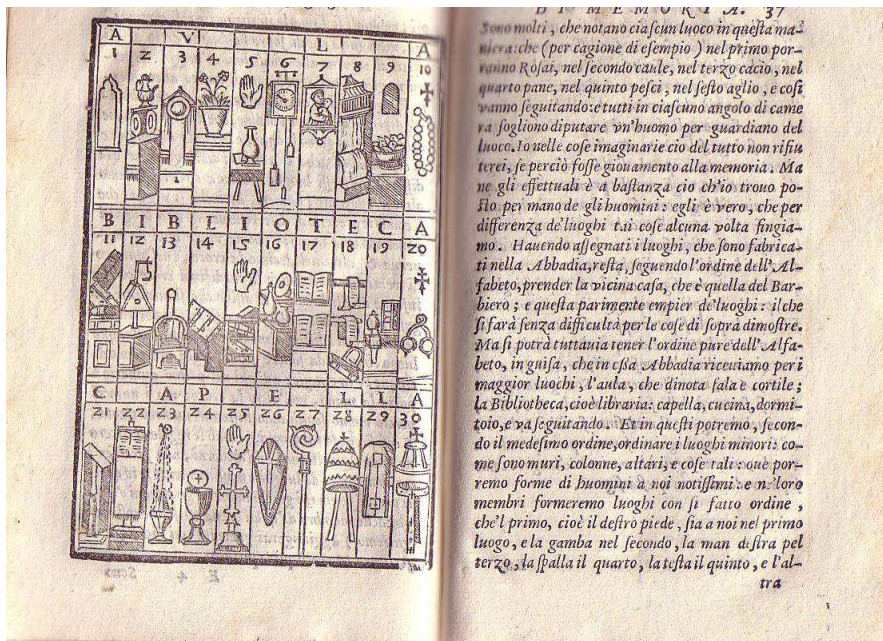 A V L A
1 2 3 4 5 6 7 8 9 10
B I B L I O T E C A
11 12 13 14 15 16 17 18 19 20
C A P E L L A
21 22 23 24 25 26 27 28 29 30
E 4 Sono
DI MEMORIA. 37
Sono molti, che notano ciaſcun luoco in queſta ma-
niera: che (per cagione di eſempio) nel primo por-
ranno Roſai, nel ſecondo caule, nel terzo cacio, nel
quarto pane, nel quinto peſci, nel ſeſto aglio, e coſi
vanno ſeguitando: e tutti in ciaſcuno angolo di came
ra ſogliono diputare vn'huomo per guardiano del
luoco. Io nelle coſe imaginarie cio del tutto non rifiu
terei, ſe perciò foſſe giouamento alla memoria. Ma
ne gli effettuali è a baſtanza cio ch'io trouo po-
ſto per mano de gli huomini: egli è vero, che per
differenza de'luoghi tai coſe alcuna volta fingia-
mo. Hauendo aſſegnati i luoghi, che ſono fabrica-
ti nella Abbadia, reſta, ſeguendo l'ordine dell'Al-
fabeto, prender la vicina caſa, che è quella del Bar-
biero; e queſta parimente empier de'luoghi: il che
ſi farà ſenza difficultà per le coſe di ſopra dimoſtre.
Ma ſi potrà tuttauia tener l'ordine pure dell'Alfa-
beto, in guiſa, che in eſſa Abbadia riceuiamo per i
maggior luochi, l'aula, che dinota ſala e cortile;
la Bibliotheca, cioè libraria: capella, cucina, dormi-
toio, e va ſeguitando. Et in queſti potremo, ſecon-
do il medeſimo ordine, ordinare i luoghi minori: co-
me ſono muri, colonne, altari, e coſe tali: oue por-
remo forme di huomini à noi notiſſimi: e ne'loro
membri formeremo luoghi con ſi fatto ordine,
che'l primo, cioè il deſtro piede, ſia a noi nel primo
luogo, e la gamba nel ſecondo, la man deſtra pel
terzo, la ſpalla il quarto, la teſta il quinto, e l'al-
tra